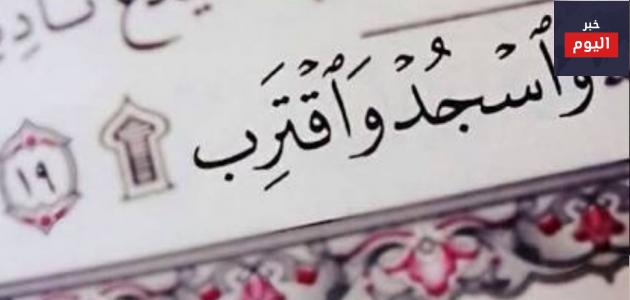 خبر
اليوم
وَٱسْجُدْ وَٱقْتَرِب ۩ ١٩